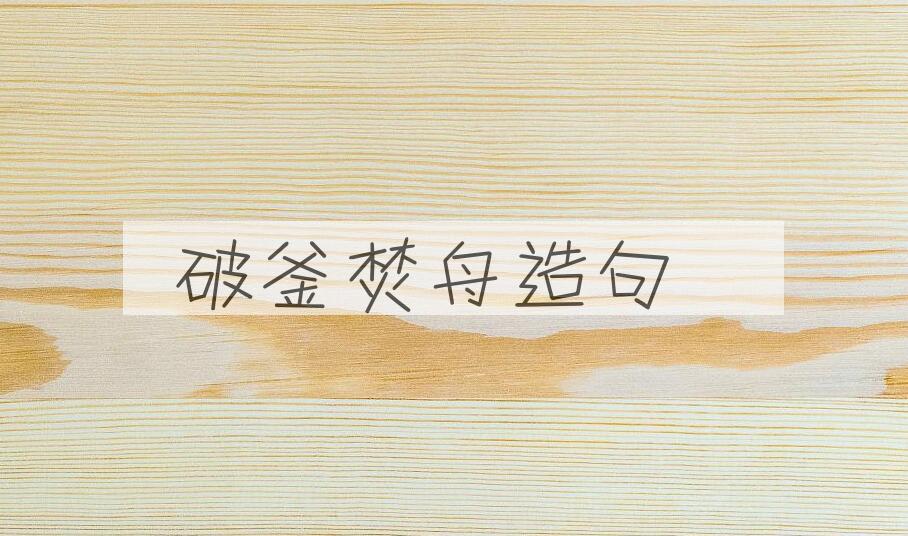 破釜焚舟造句